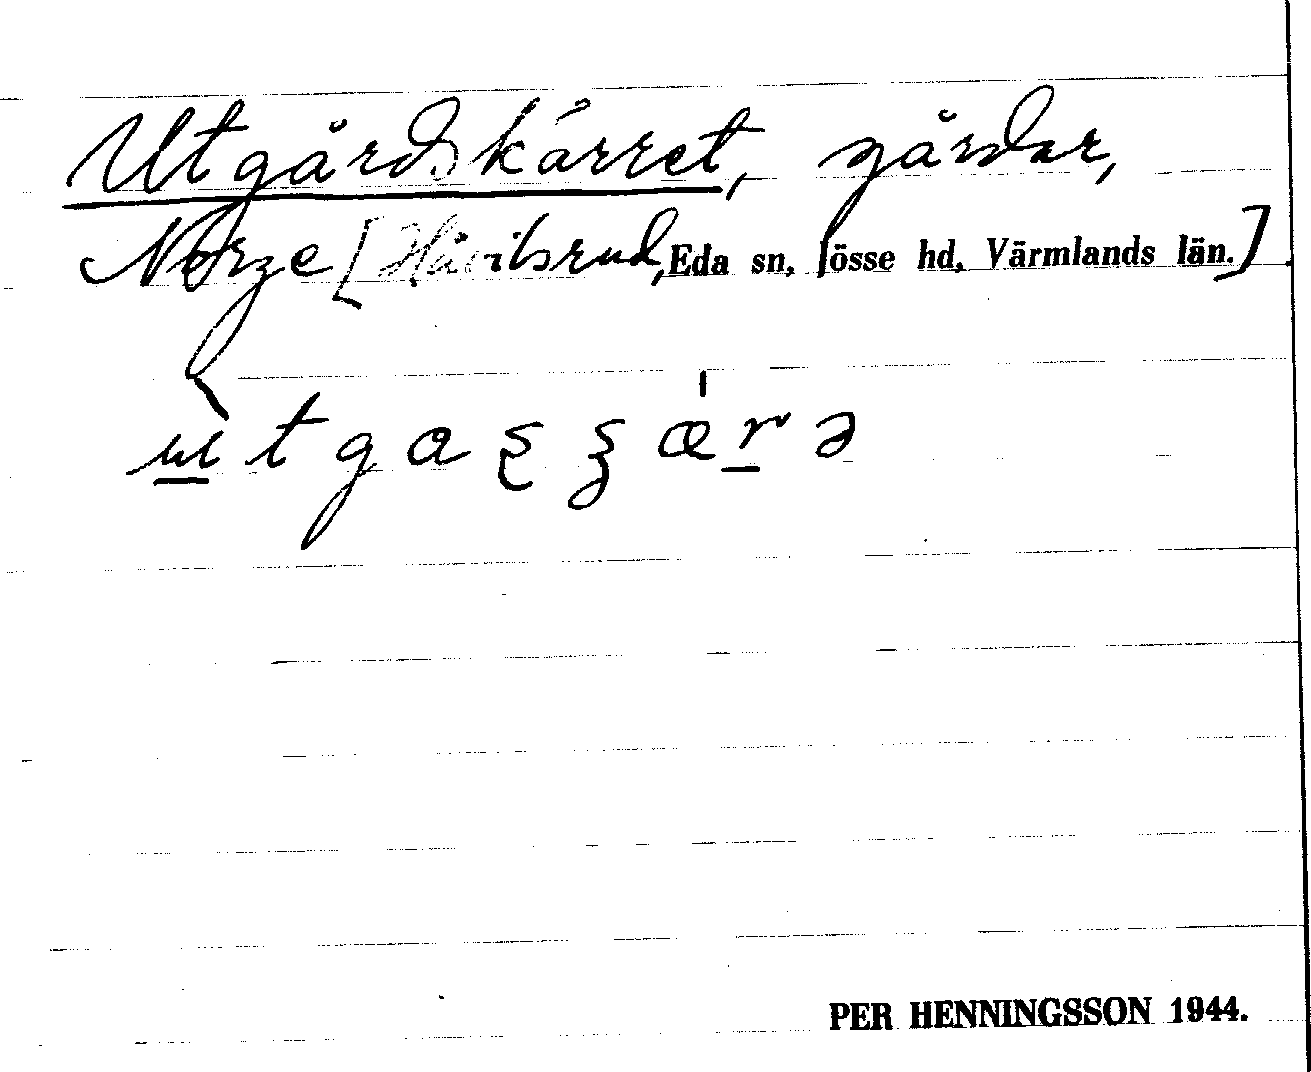 Utgårdskärret, gårdar,
Norge [Håvilsrud, Eda sn, Jösse hd, Värmlands län.]
PER HENNINGSSON 1944.